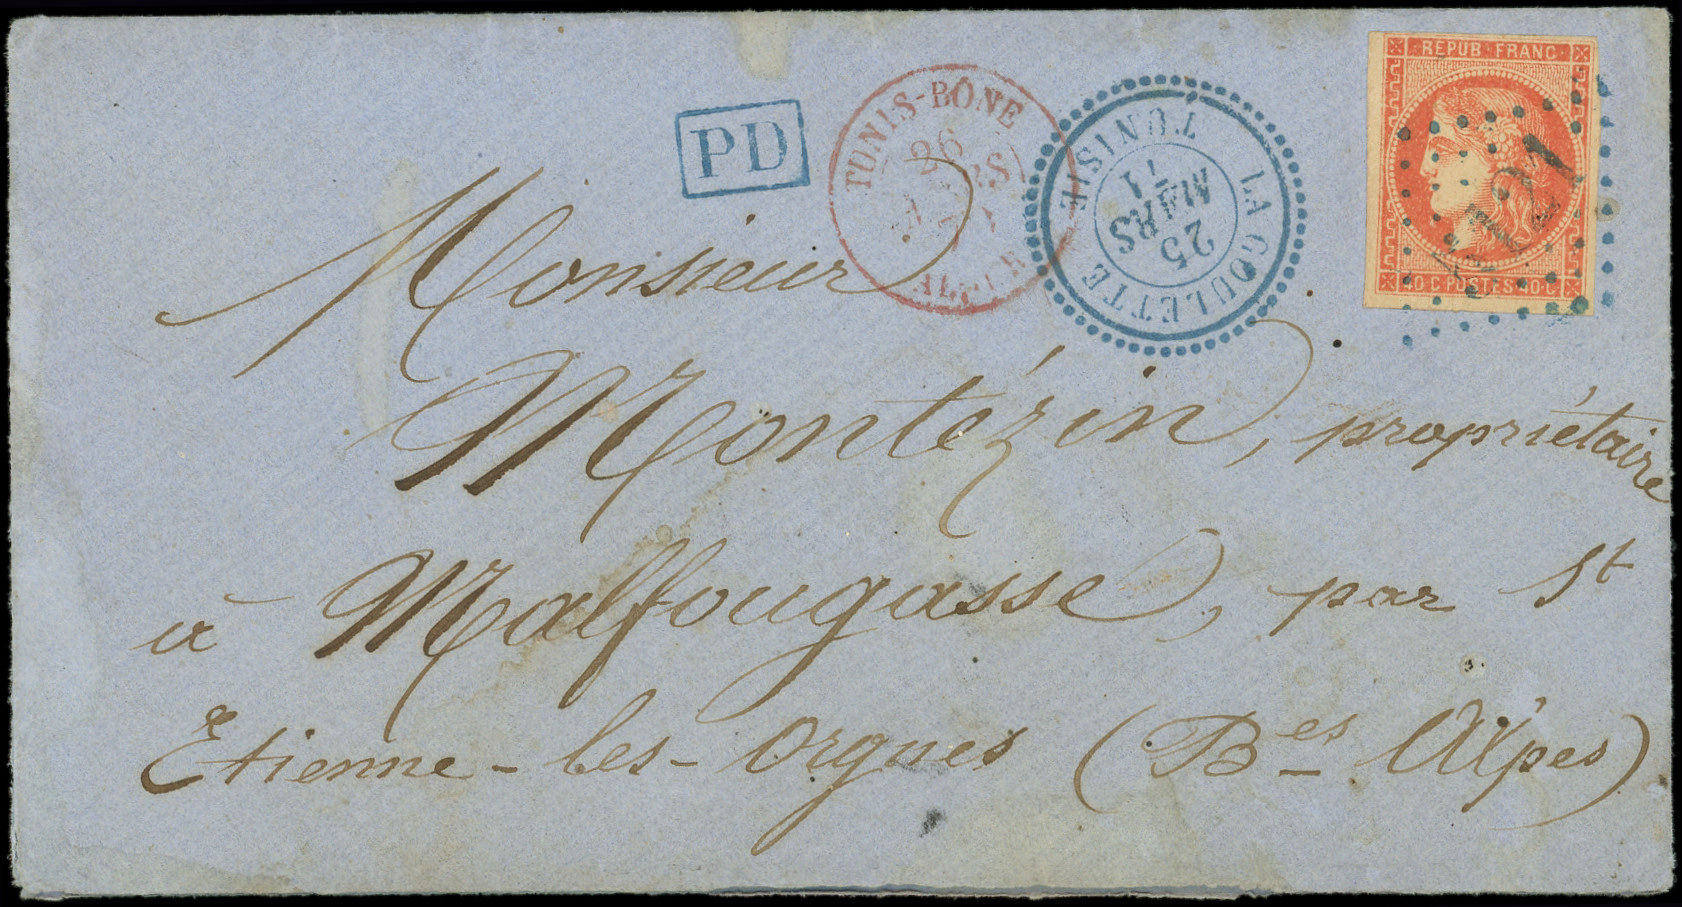 REPUB·FRANC·
40·C POSTES 40·C·
PD
TUNIS-BÔNE
26
MARS
ALGER
LA GOULETTE TUNISIE
25
MARS
71
Monsieur
Montézin, propriétaire
à Malfougasse, par St
Etienne-les-Orgues (Bes Alpes)